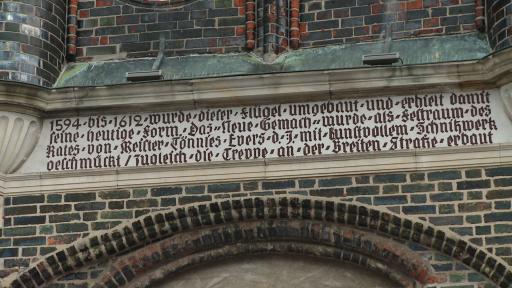 1594·bis·1612·wurde·dieser·Flügel·umgebaut·und·erhielt·damit
seine·heutige·Form·Das·Neue·Gemach·wurde·als·Festraum·des
Rates·von·Meister·Tönnies·Evers·d·J·mit·kunstvollem·Schnitzwerk
geschmückt / zugleich·die·Treppe·an·der·Breiten·Straße·erbaut